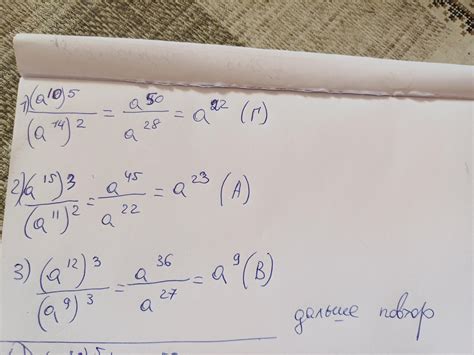 1) (a¹⁰)⁵ / (a¹⁴)² = a⁵⁰ / a²⁸ = a²² (Г)
2) (a¹⁵)³ / (a¹¹)² = a⁴⁵ / a²² = a²³ (А)
3) (a¹²)³ / (a⁹)³ = a³⁶ / a²⁷ = a⁹ (В)
дальше повтор